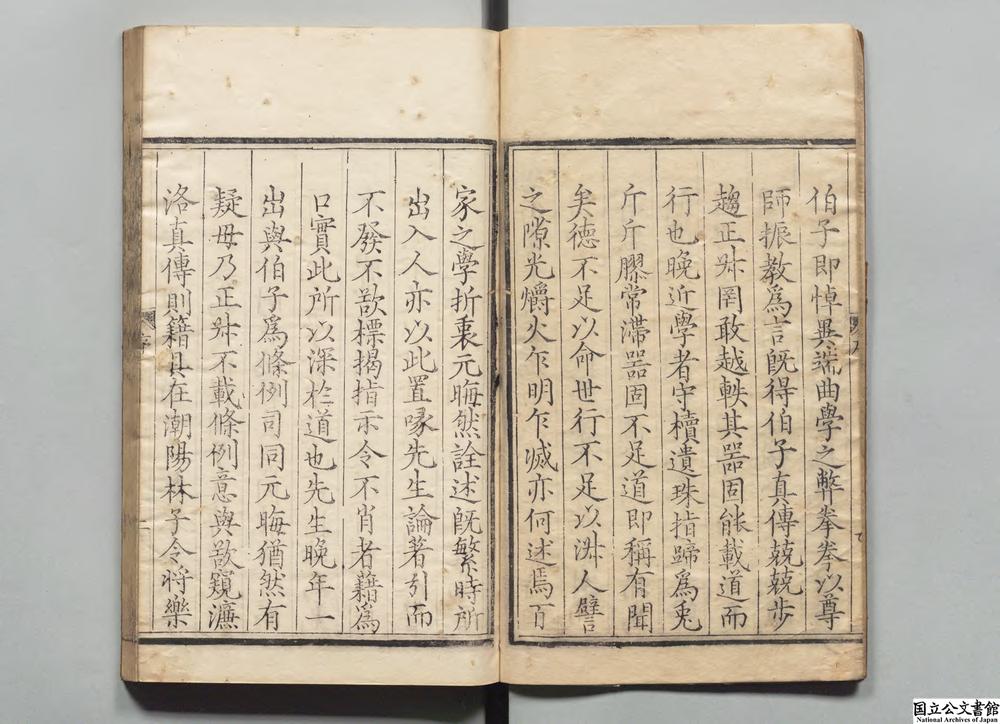 伯子即悼異端曲學之弊拳拳以尊
師振教為言旣得伯子真傳兢兢步
趨正叔罔敢越軼其器固能載道而
行也晚近學者守櫝遺珠指蹄為兎
斤斤膠常滯器固不足道即稱有聞
矣德不足以命世行不足以淑人譬
之隙光爝火乍明乍滅亦何述焉百
家之學折衷元晦然詮述旣繁時所
出入人亦以此置喙先生論著引而
不發不欲標揭指示令不肖者藉為
口實此所以深於道也先生晚年一
出與伯子為條例司同元晦猶然有
疑毋乃正叔不載條例意與欲窺濂
洛真傳則籍具在潮陽林子令將樂
序
国立公文書館
National Archives of Japan